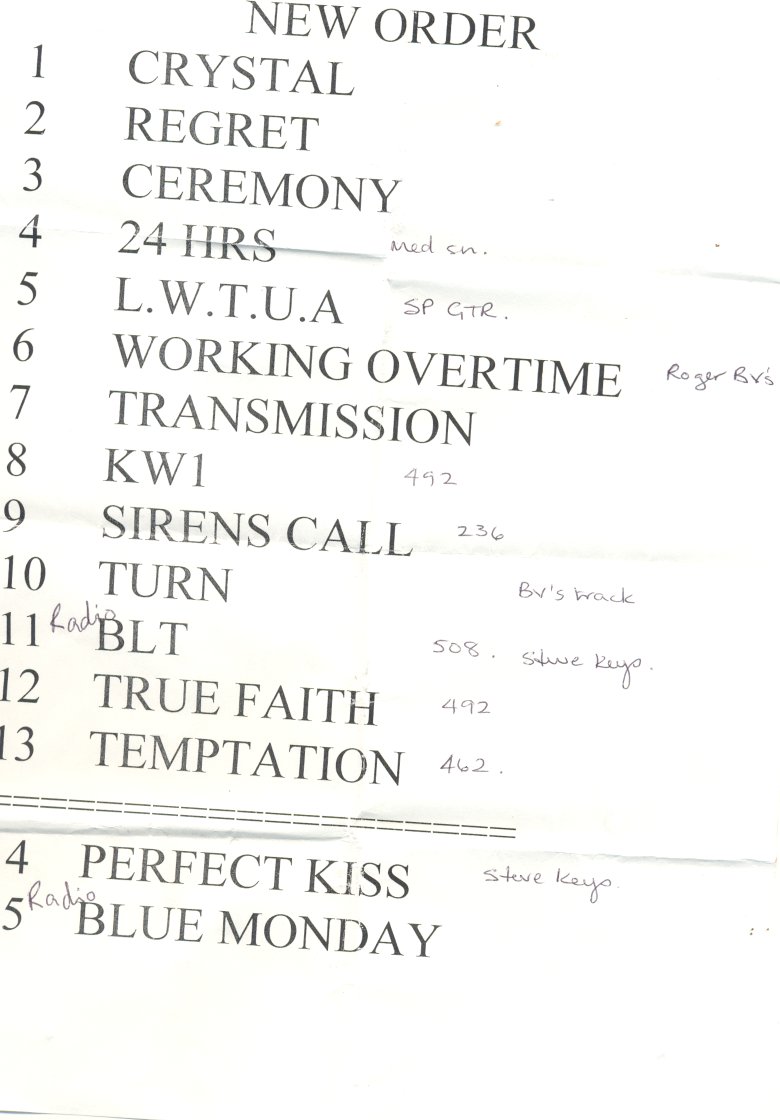 NEW ORDER
1 CRYSTAL
2 REGRET
3 CEREMONY
4 24 HRS med sn.
5 L.W.T.U.A SP GTR.
6 WORKING OVERTIME Roger BV's
7 TRANSMISSION
8 KW1 492
9 SIRENS CALL 236
10 TURN BV's track
11 Radio BLT 508. Steve keys.
12 TRUE FAITH 492
13 TEMPTATION 462.
==========================
4 PERFECT KISS Steve keys.
5 Radio BLUE MONDAY